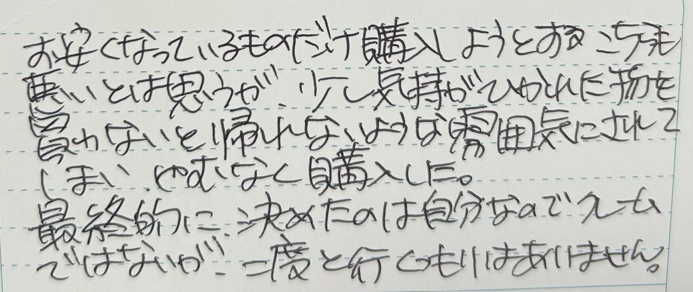 お安くなっているものだけ購入しようとするこちらも
悪いとは思うが、少し気持がひかれた物を
買わないと帰れないような雰囲気にされて
しまい、やむなく購入した。
最終的に決めたのは自分なのでクレーム
ではないが、二度と行くつもりはありません。